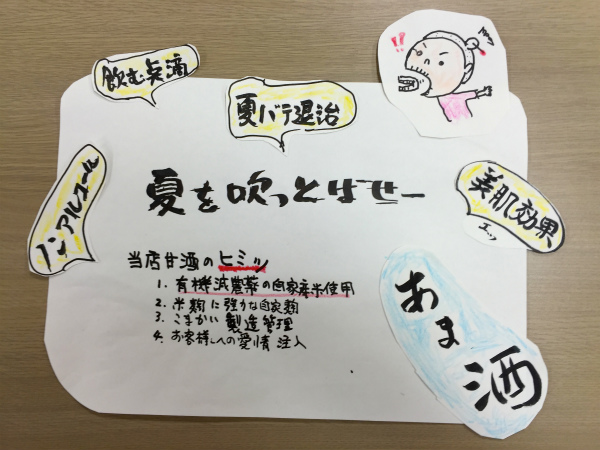 飲む点滴
夏バテ退治
!!
ノンアルコール
美肌効果
エッ
夏を吹っとばせー
当店甘酒のヒミツ
1. 有機減農薬の自家産米使用
2. 米麹に強力な自家麹
3. こまかい製造管理
4. お客様への愛情注入
あま酒